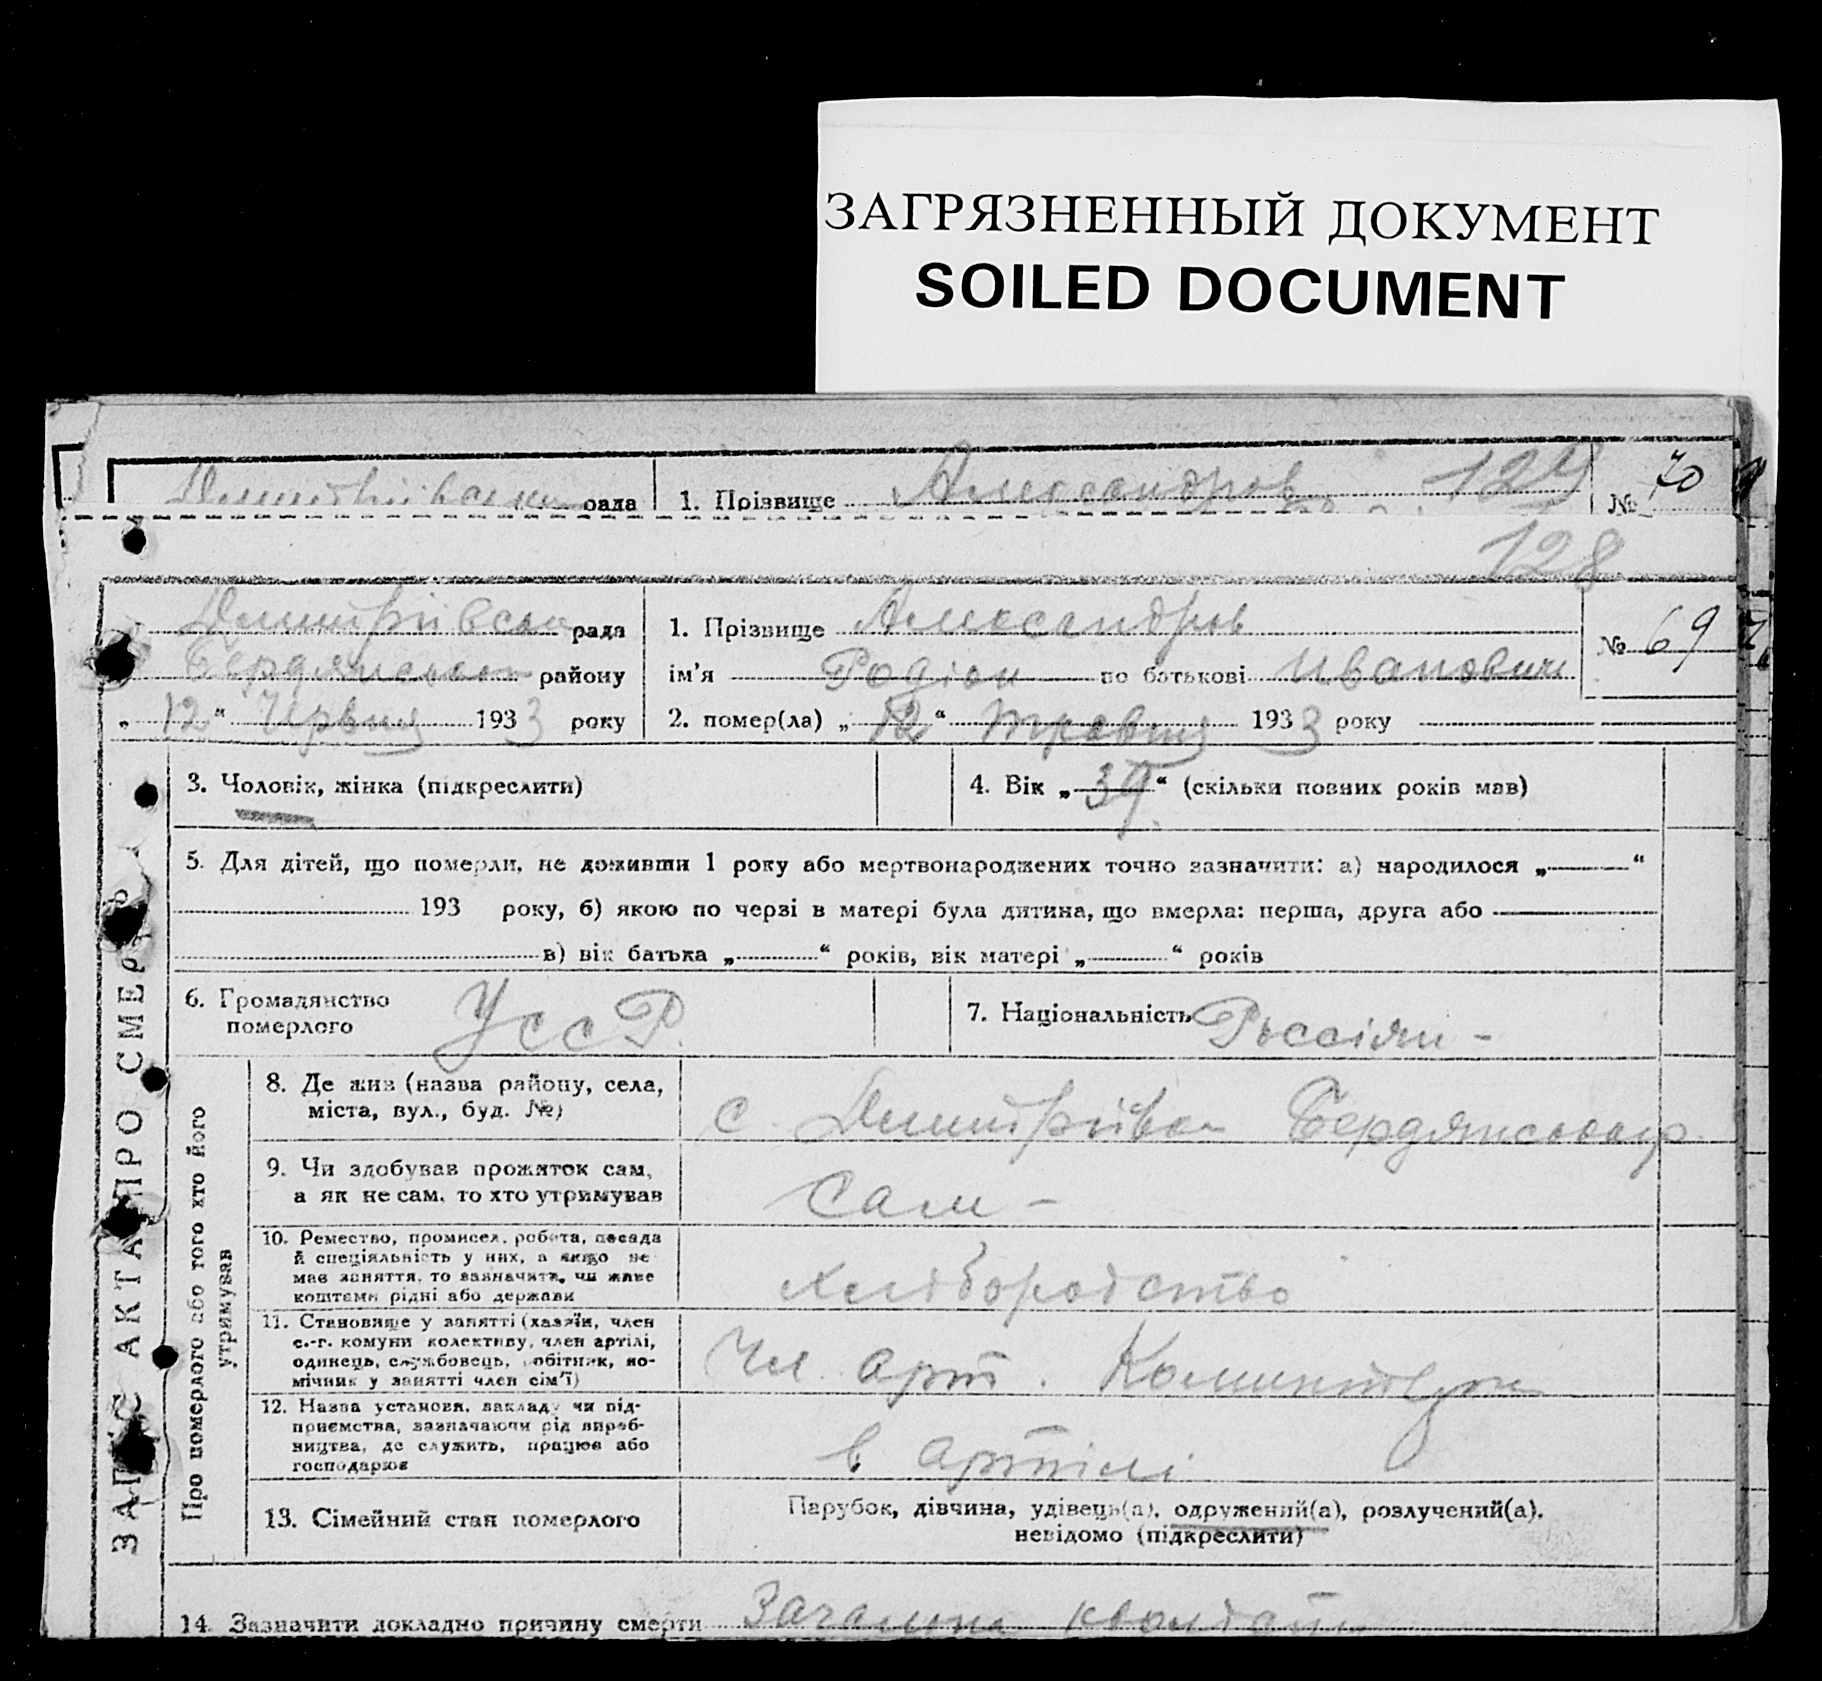 ЗАГРЯЗНЕННЫЙ ДОКУМЕНТ
SOILED DOCUMENT
рада 1. Прізвище Александров 129 № 70
128
Димитрівська рада 1. Прізвище Александров № 69
Бердянського району ім'я Родіон по батькові Иванович
„12“ Червня 1933 року 2. помер(ла) „12“ травня 1933 року
3. Чоловік, жінка (підкреслити) 4. Вік „39“ (скільки повних років мав)
5. Для дітей, що померли, не доживши 1 року або мертвонароджених точно зазначити: а) народилося „ “
193 року, б) якою по черзі в матері була дитина, що вмерла: перша, друга або
в) вік батька „ “ років, вік матері „ “ років
6. Громадянство померлого УССР. 7. Національність Россіян -
ЗАПИС АКТА ПРО СМЕРТЬ
Про померлого або того хто його утримував
8. Де жив (назва району, села,
міста, вул., буд. №) с. Димитрівка
9. Чи здобував прожиток сам,
а як не сам, то хто утримував Сам -
10. Ремество, промисел, робота, посада
й спеціяльність у них, а якщо не
мав заняття, то зазначити, чи живе
коштами рідні або держави
11. Становище у занятті (хазяїн, член
с.-г. комуни колективу, член артілі,
одинець, службовець, робітник, по-
мічник у занятті член сім'ї) Чл. арт.
12. Назва установи, закладу чи під-
приємства, зазначаючи рід вироб-
ництва, де служить, працює або
господарює в артілі
13. Сімейний стан померлого Парубок, дівчина, удівець(а), одружений(а), розлучений(а),
невідомо (підкреслити)
14. Зазначити докладно причину смерти